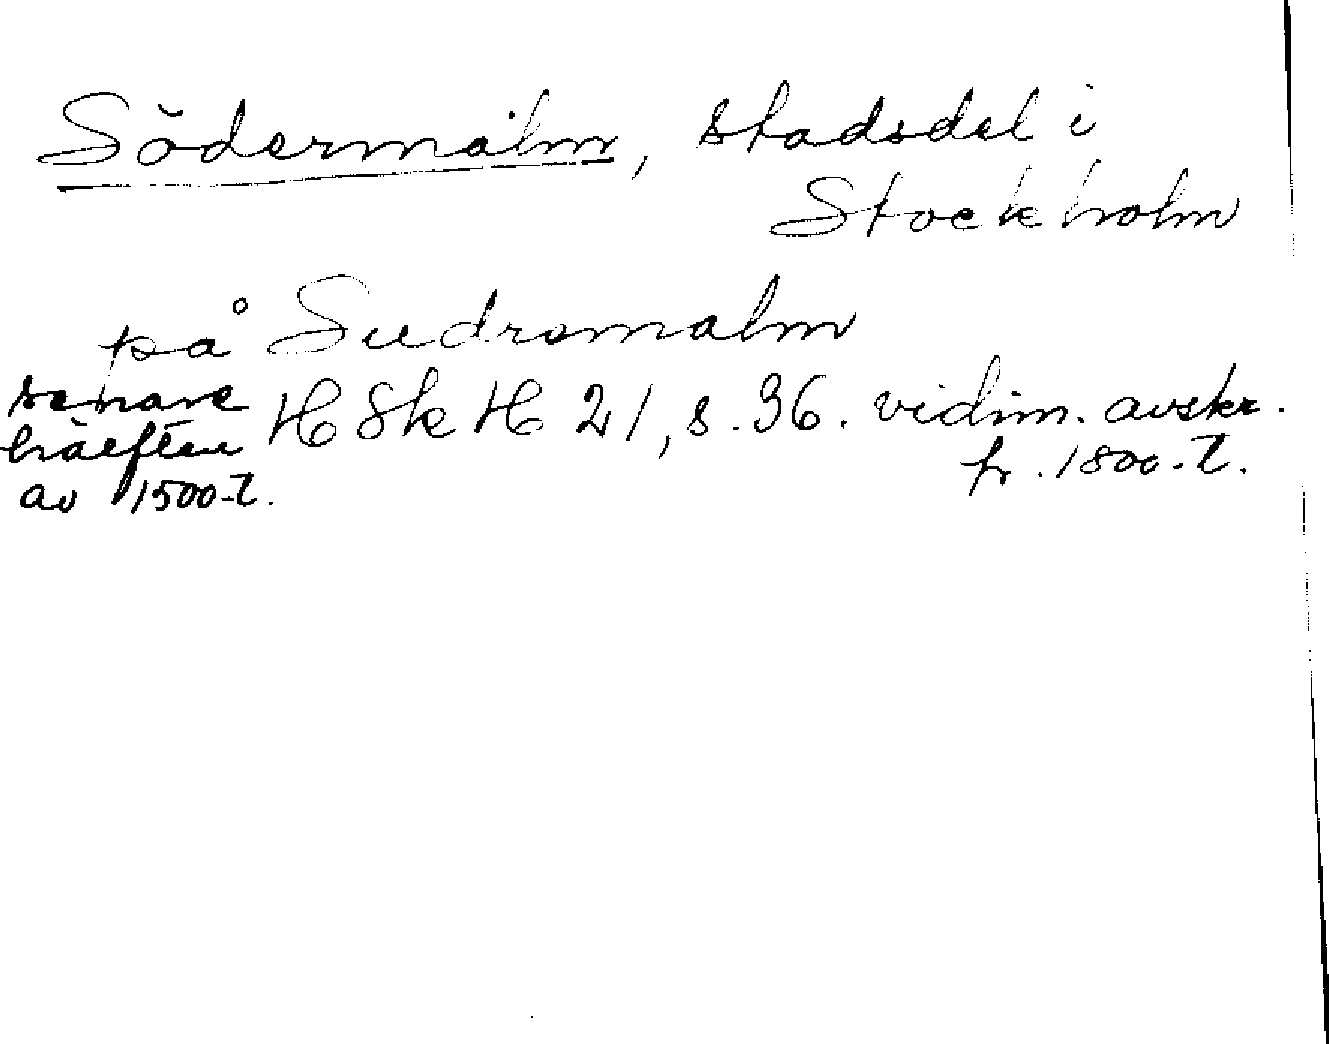 Södermalm, stadsdel i
Stockholm
på Sudromalm
senare
hälften
av 1500-t.
H Sk H 21, s. 36. vidim. avskr.
fr. 1800-t.